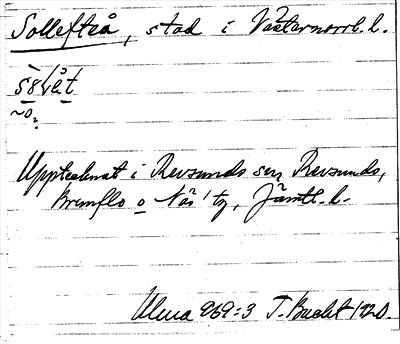 Sollefteå, stad i Västernorrl. l.
Upptecknat i Revsunds sn, Revsunds,
Brunflo o Näs tg, Jämtl. l.
Ulma 969:3 T. Bucht 1920.